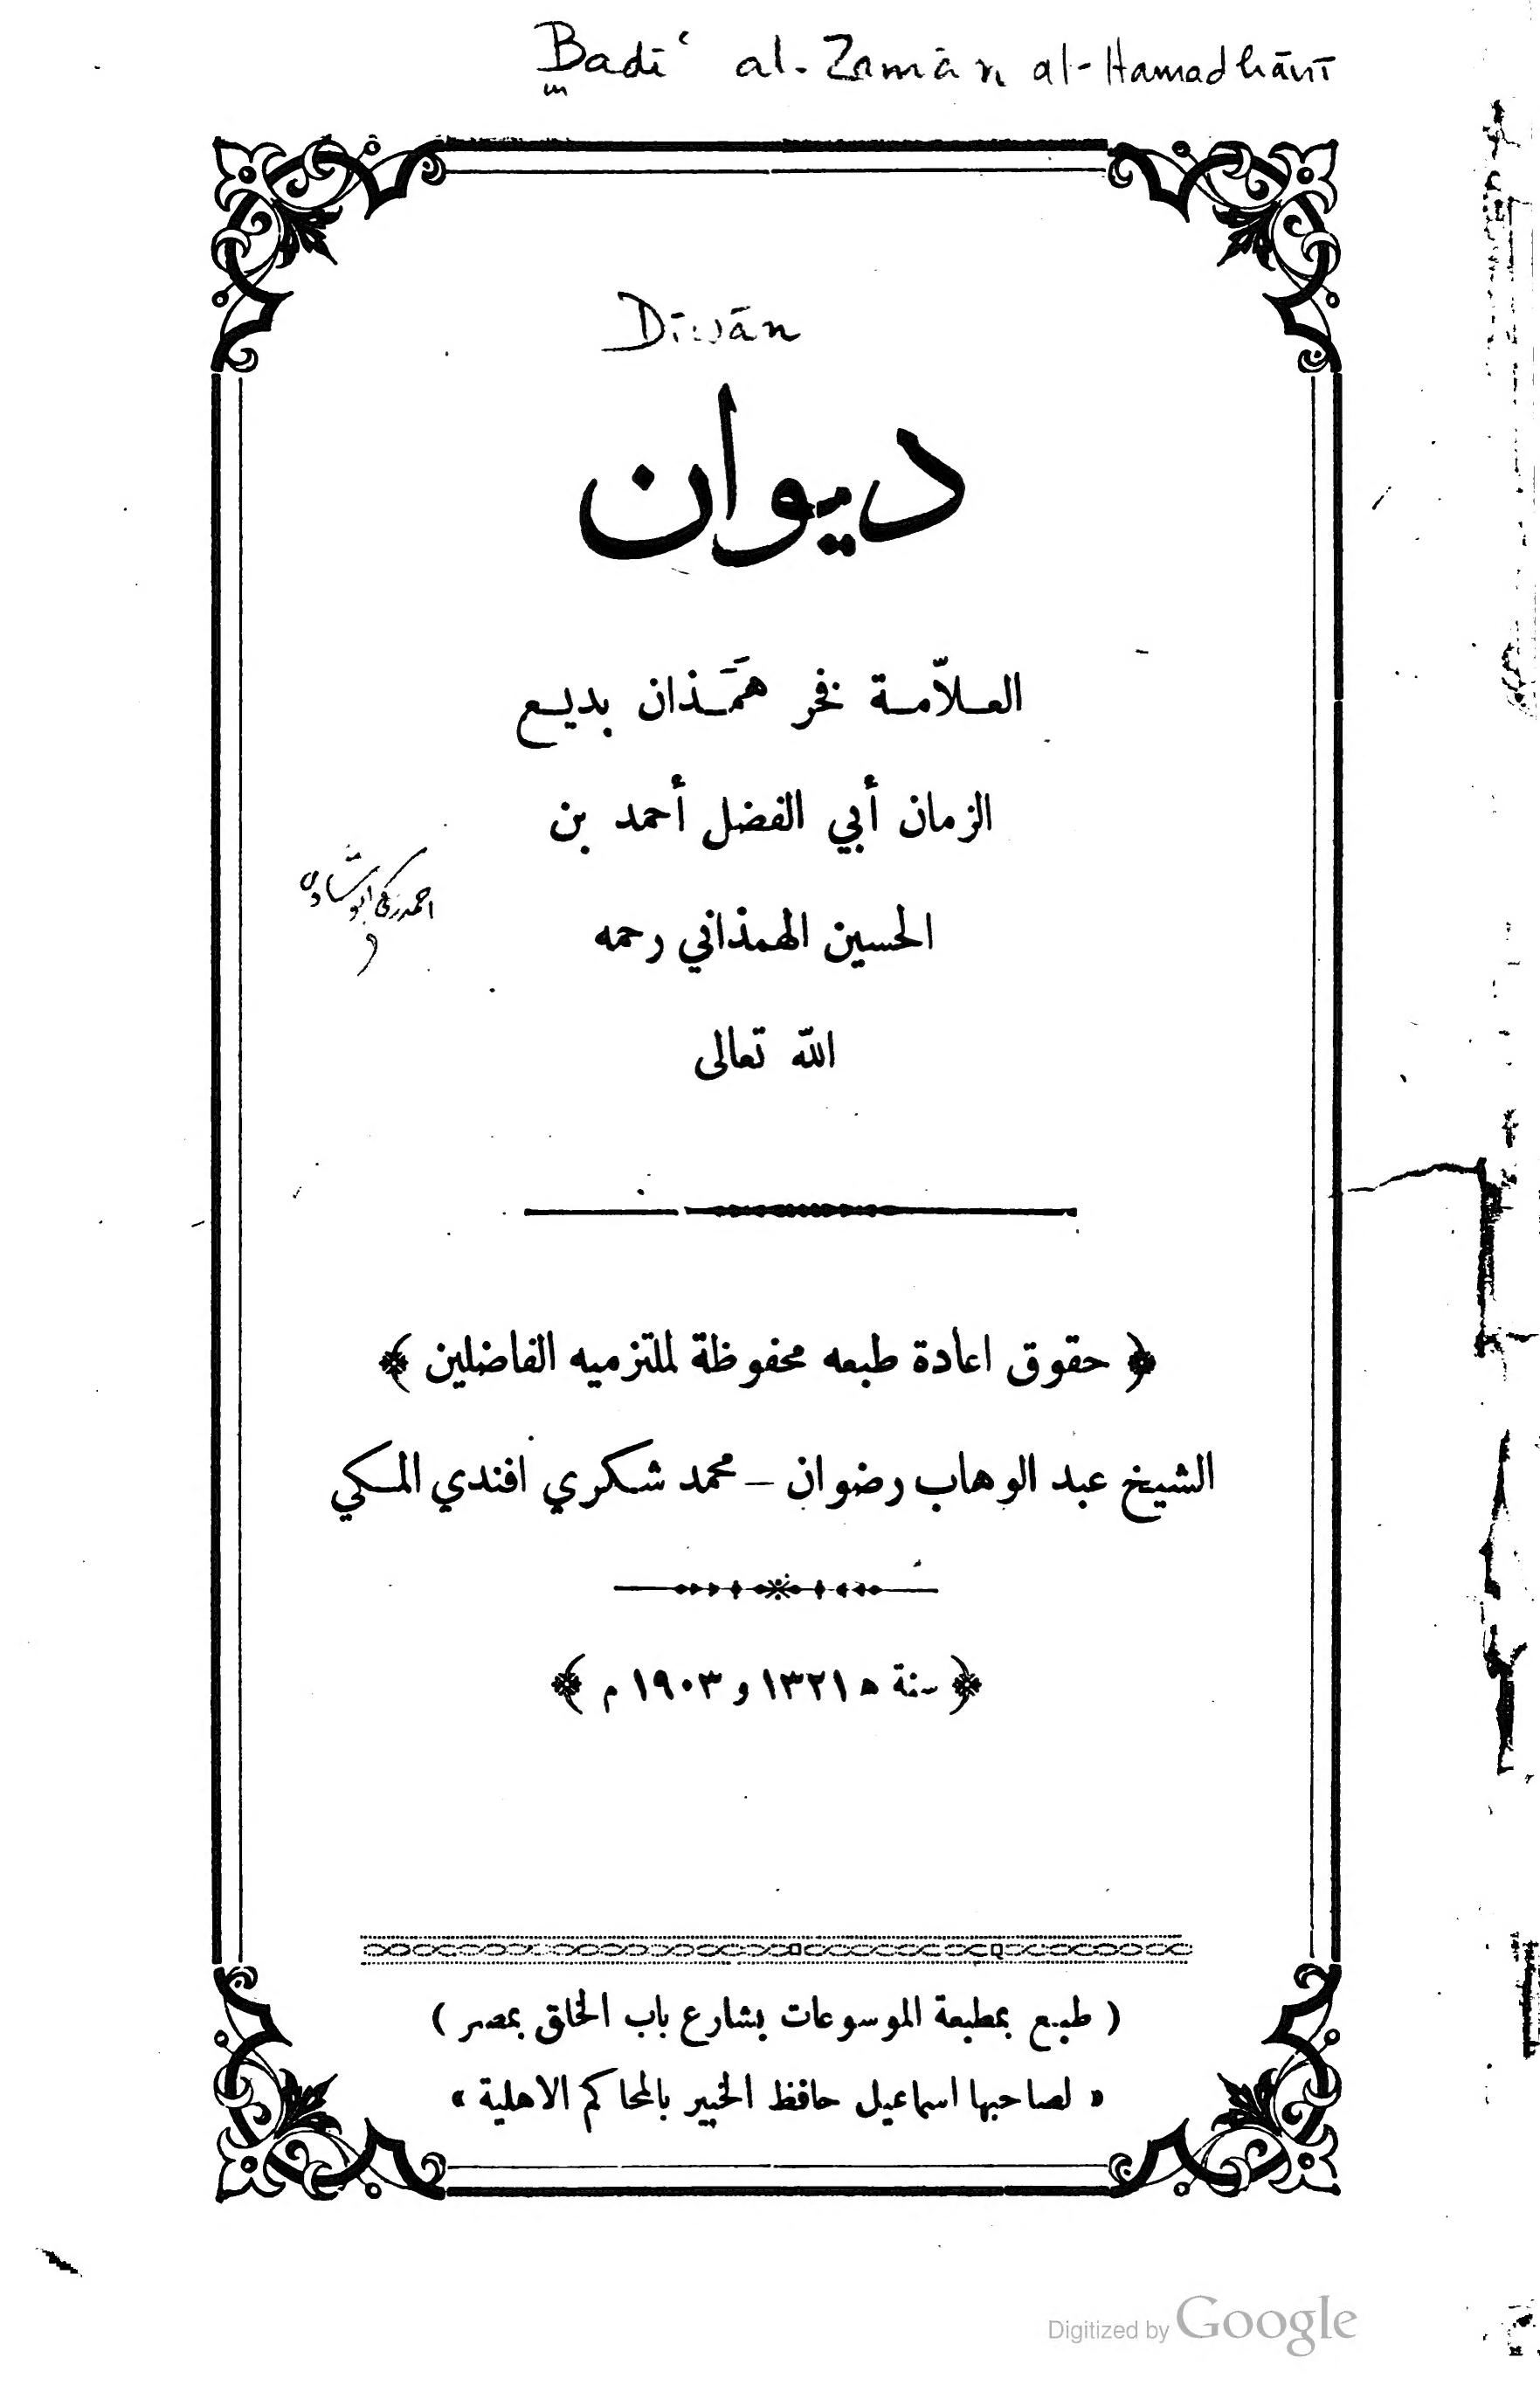 Badīʿ al-Zamān al-Hamadhānī
Dīwān
ديوان
العلاّمة فخر هَمَذان بديع
الزمان أبي الفضل أحمد بن
احمد زكي ابو شادي
الحسين الهمذاني رحمه
الله تعالى
﴿ حقوق اعادة طبعه محفوظة لملتزميه الفاضلين ﴾
الشيخ عبد الوهاب رضوان – محمد شكري افندي المكي
﴿ سنة ١٣٢١ ه و ١٩٠٣ م ﴾
( طبع بمطبعة الموسوعات بشارع باب الخلق بمصر )
« لصاحبها اسماعيل حافظ الخبير بالمحاكم الاهلية »
Digitized by Google